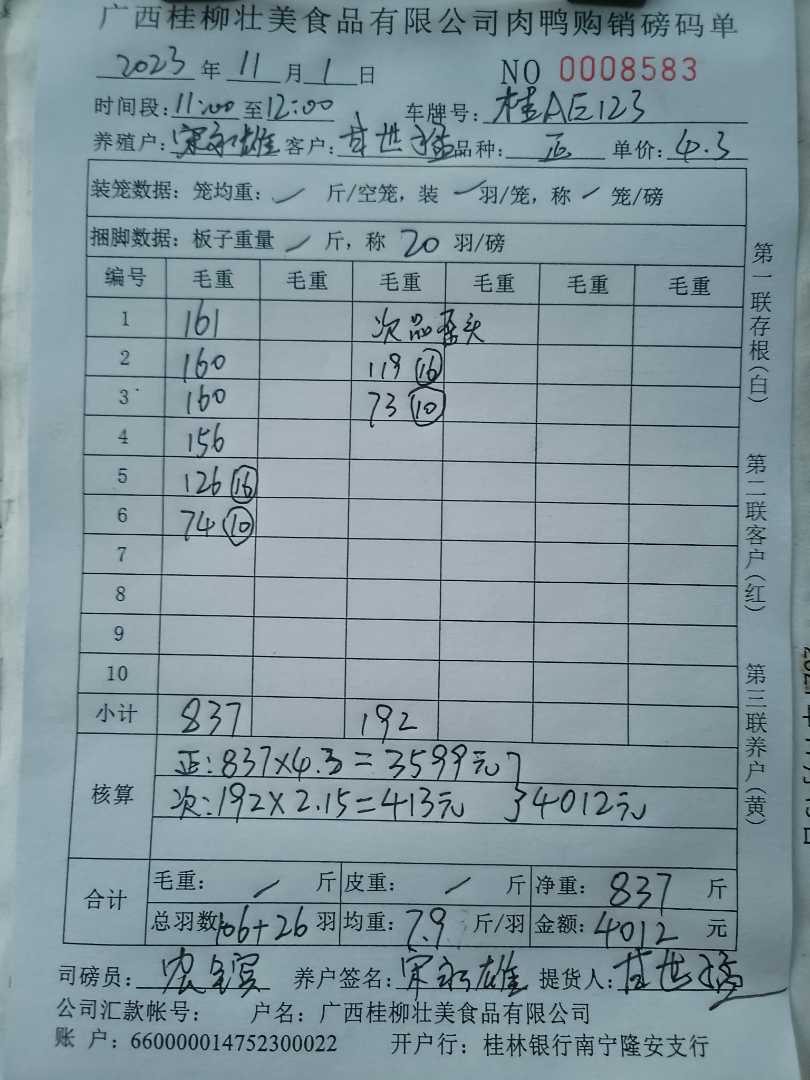 广西桂柳壮美食品有限公司肉鸭购销磅码单
2023 年 11 月 1 日 NO 0008583
时间段: 11:00 至 12:00 车牌号: 桂AE123
养殖户: 宋永雄 客户: 甘世猛 品种: 正 单价: 4.3
装笼数据: 笼均重: / 斤/空笼, 装 / 羽/笼, 称 / 笼/磅
捆脚数据: 板子重量 / 斤, 称 20 羽/磅
编号 毛重 毛重 毛重 毛重 毛重 毛重
1 161 次品
2 160 119 ⑯
3 160 73 ⑩
4 156
5 126 ⑯
6 74 ⑩
7
8
9
10
小计 837 192
核算 正: 837×4.3=3599元
次: 192×2.15=413元 } 4012元
合计 毛重: / 斤 皮重: / 斤 净重: 837 斤
总羽数 106+26 羽 均重: 7.9 斤/羽 金额: 4012 元
司磅员: 养户签名: 宋永雄 提货人: 甘世猛
公司汇款帐号: 户名: 广西桂柳壮美食品有限公司
账 户: 660000014752300022 开户行: 桂林银行南宁隆安支行
第一联存根(白) 第二联客户(红) 第三联养户(黄)